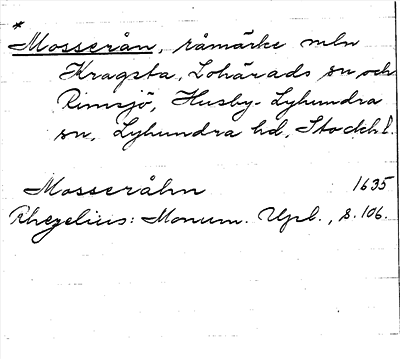 *
Mosserån, råmärke mln
Kragsta, Lohärads sn och
Rimsjö, Husby-Lyhundra
sn, Lyhundra hd, Stockh.l.
Mosseråhn 1635
Rhezelius: Monum. Upl., s. 106.